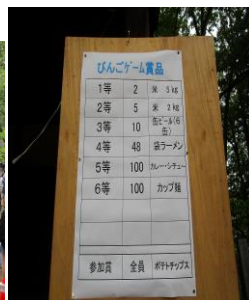 びんごゲーム賞品
1等 2 米 5kg
2等 5 米 2kg
3等 10 缶ビール(6缶)
4等 48 袋ラーメン
5等 100 カレー・シチュー
6等 100 カップ麺
参加賞 全員 ポテトチップス